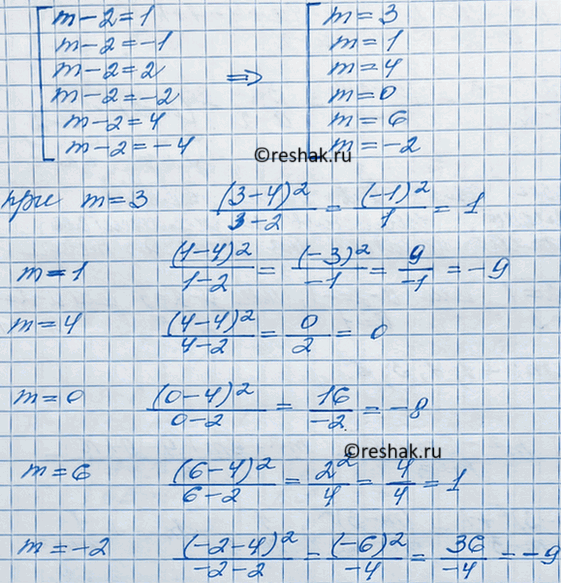 m-2=1 m=3
m-2=-1 m=1
m-2=2 m=4
m-2=-2 ⇒ m=0
m-2=4 m=6
m-2=-4 m=-2
©reshak.ru
при m=3 (3-4)²/3-2 = (-1)²/1 = 1
m=1 (1-4)²/1-2 = (-3)²/-1 = 9/-1 = -9
m=4 (4-4)²/4-2 = 0/2 = 0
m=0 (0-4)²/0-2 = 16/-2 = -8
©reshak.ru
m=6 (6-4)²/6-2 = 2²/4 = 4/4 = 1
m=-2 (-2-4)²/-2-2 = (-6)²/-4 = 36/-4 = -9